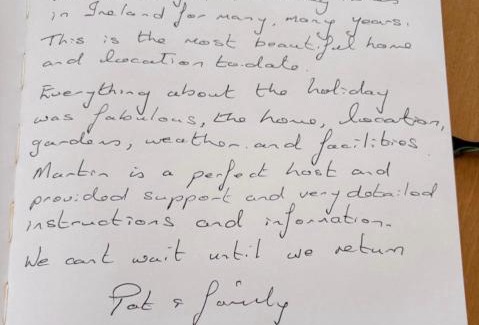 in Ireland for many, many years.
This is the most beautiful home
and location to date.
Everything about the holiday
was fabulous, the home, location,
gardens, weather and facilities
Martin is a perfect host and
provided support and very detailed
instructions and information.
We cant wait until we return
Pat & family